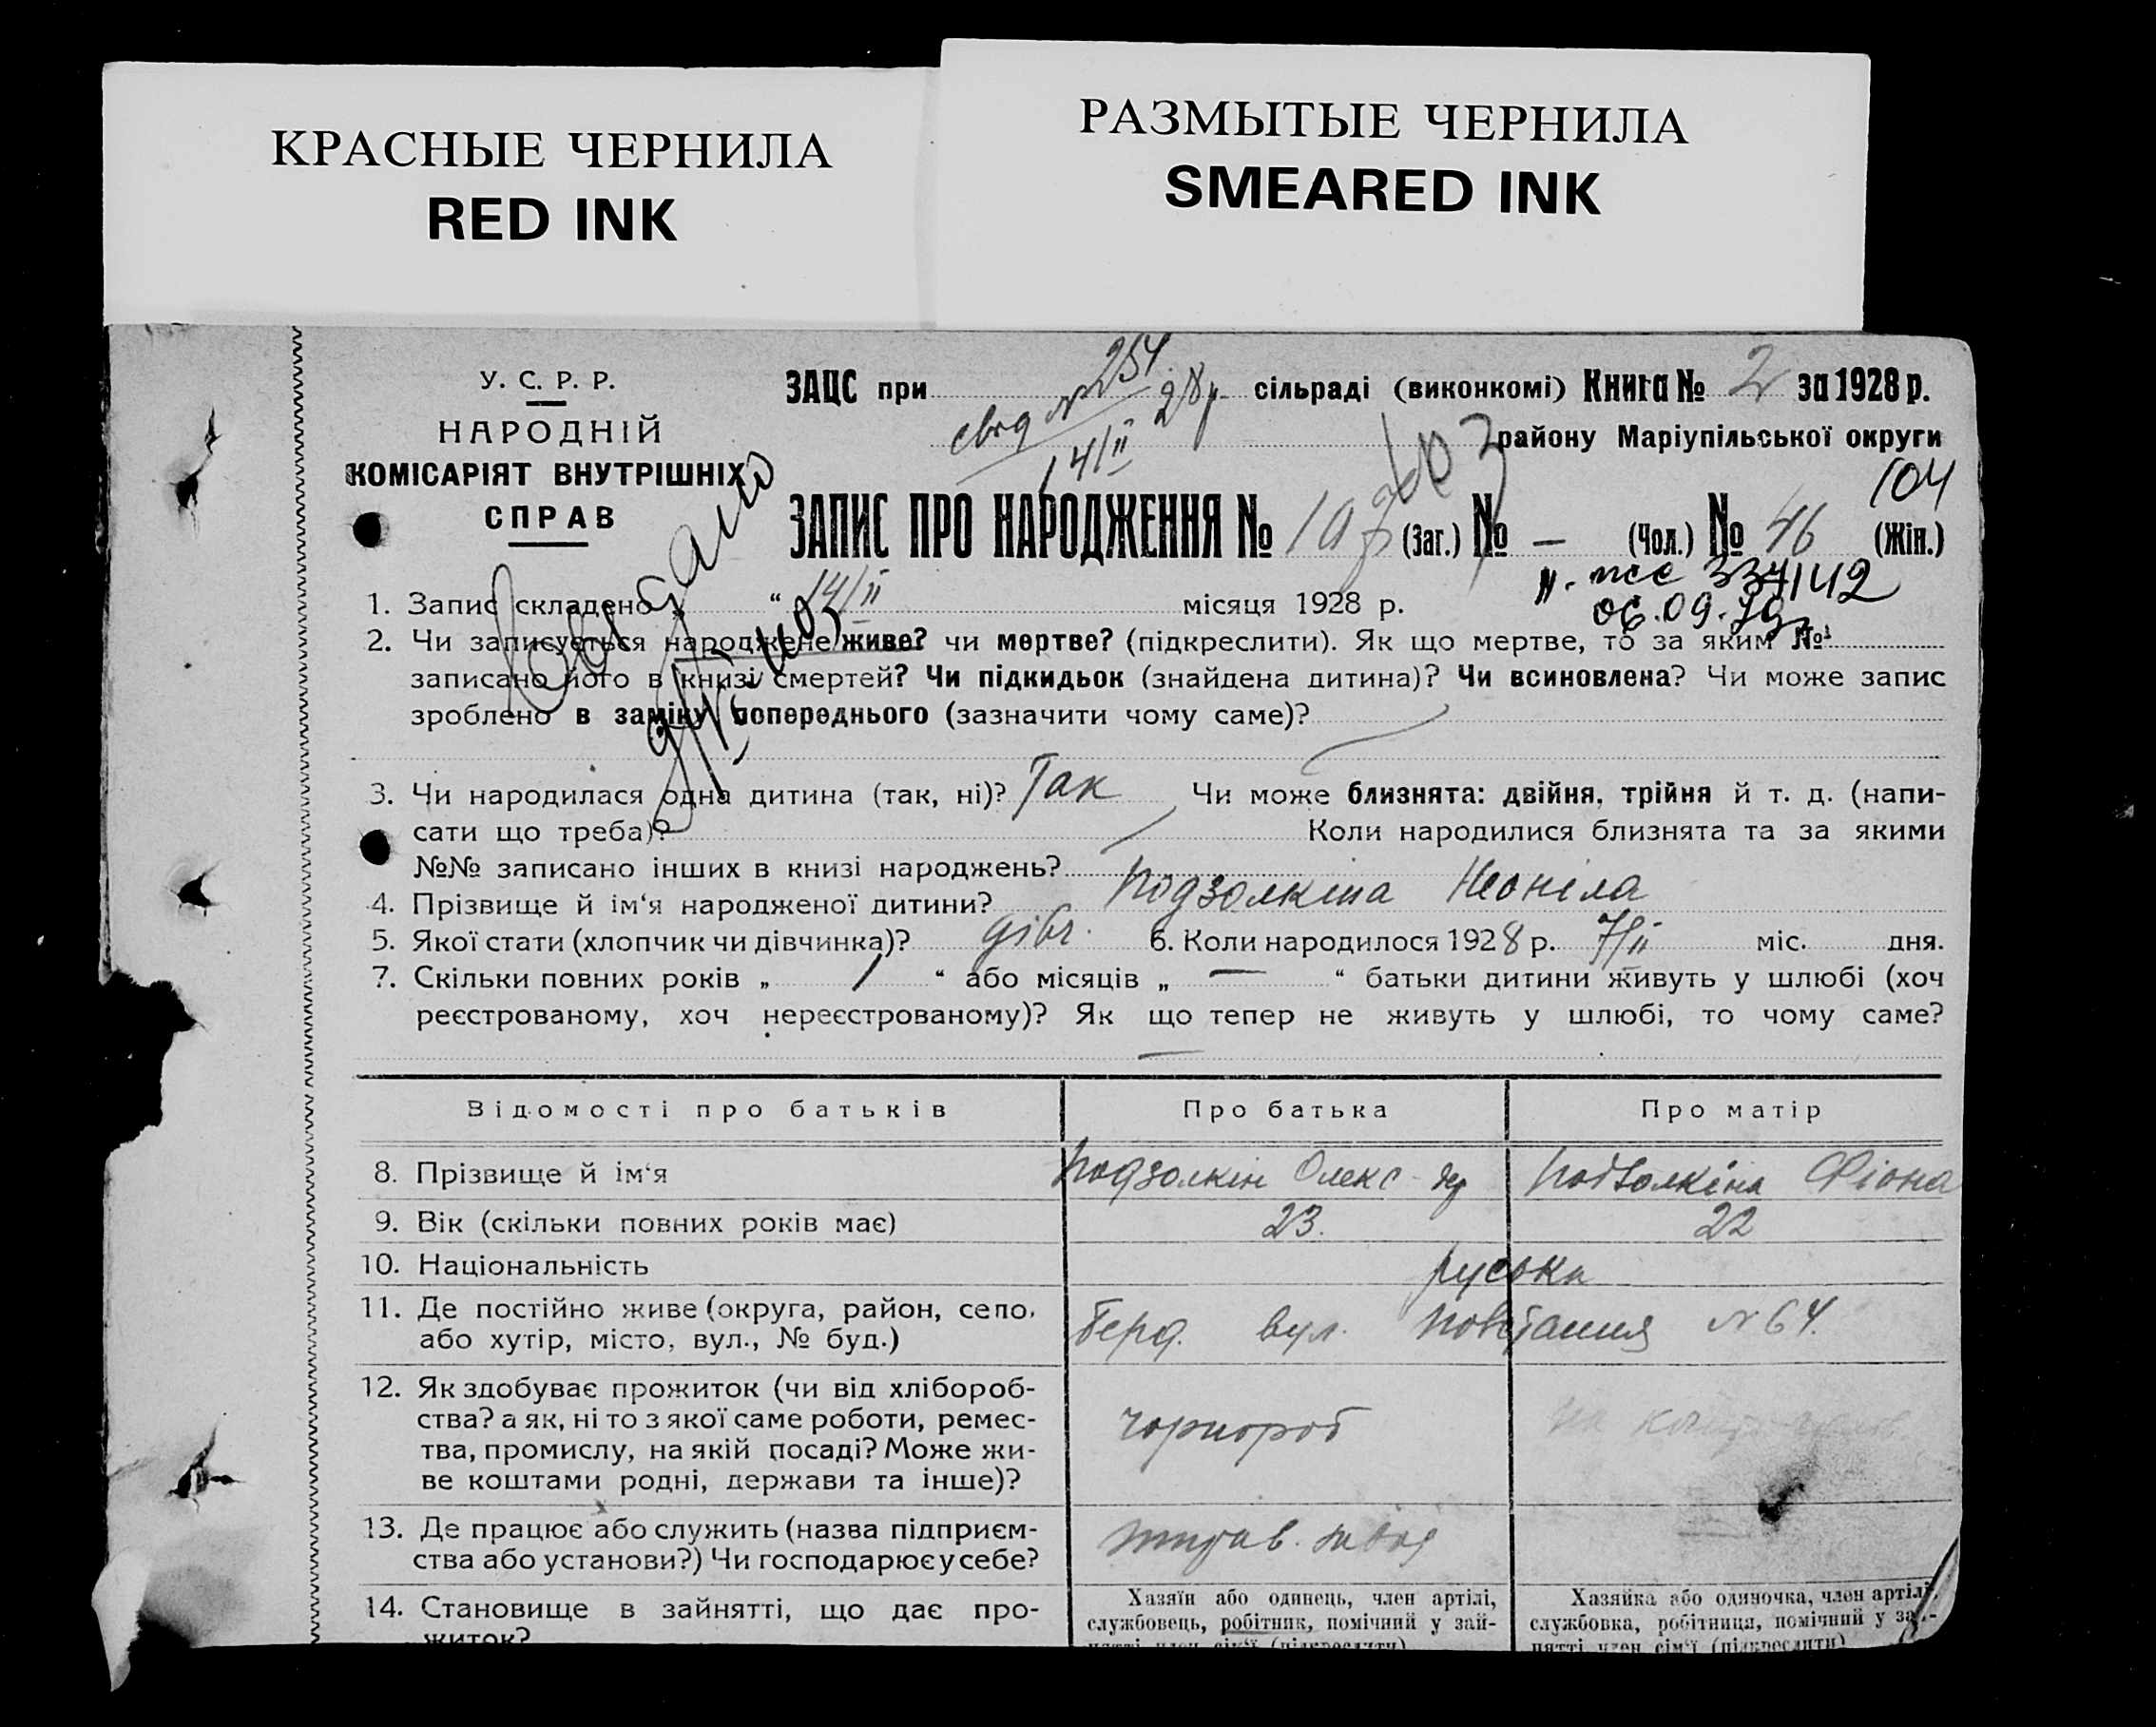 КРАСНЫЕ ЧЕРНИЛА
RED INK
РАЗМЫТЫЕ ЧЕРНИЛА
SMEARED INK
У. С. Р. Р.
НАРОДНІЙ
КОМІСАРІЯТ ВНУТРІШНІХ
СПРАВ
ЗАЦС при № 254 28р сільраді (виконкомі) Книга № 2 за 1928 р.
14/II району Маріупільської округи
104
ЗАПИС ПРО НАРОДЖЕННЯ № (Заг.) № — (Чол.) № 46 (Жін.)
334142
06.09.
1. Запис складено „ “ 14/II місяця 1928 р.
2. Чи записується народжене живе? чи мертве? (підкреслити). Як що мертве, то за яким №
записано його в книзі смертей? Чи підкидьок (знайдена дитина)? Чи всиновлена? Чи може запис
зроблено в заміну попереднього (зазначити чому саме)?
3. Чи народилася одна дитина (так, ні)? Так Чи може близнята: двійня, трійня й т. д. (напи-
сати що треба)? Коли народилися близнята та за якими
№№ записано інших в книзі народжень?
4. Прізвище й ім‘я народженої дитини? Подзолкіна Неоніла
5. Якої стати (хлопчик чи дівчинка)? дівч. 6. Коли народилось 1928 р. 7/II міс. дня.
7. Скільки повних років „ 1 “ або місяців „ — “ батьки дитини живуть у шлюбі (хоч
реєстрованому, хоч нереєстрованому)? Як що тепер не живуть у шлюбі, то чому саме?
—
Відомості про батьків Про батька Про матір
8. Прізвище й ім‘я Подзолкін Олекс-др Подзолкіна Фіона
9. Вік (скільки повних років має) 23. 22
10. Національність руська
11. Де постійно живе (округа, район, село,
або хутір, місто, вул., № буд.) Берд. вул. Повстання № 64.
12. Як здобуває прожиток (чи від хлібороб-
ства? а як, ні то з якої саме роботи, ремес-
тва, промислу, на якій посаді? Може жи-
ве коштами родні, держави та інше)?
чорнороб
на
13. Де працює або служить (назва підприєм-
ства або установи?) Чи господарює у себе?
завод
14. Становище в зайнятті, що дає про-
житок?
Хазяїн або одинець, член артілі,
службовець, робітник, помічний у зай-
нятті член сім‘ї (підкреслити)
Хазяйка або одиночка, член артілі,
службовка, робітниця, помічний у зай-
нятті член сім‘ї (підкреслити)